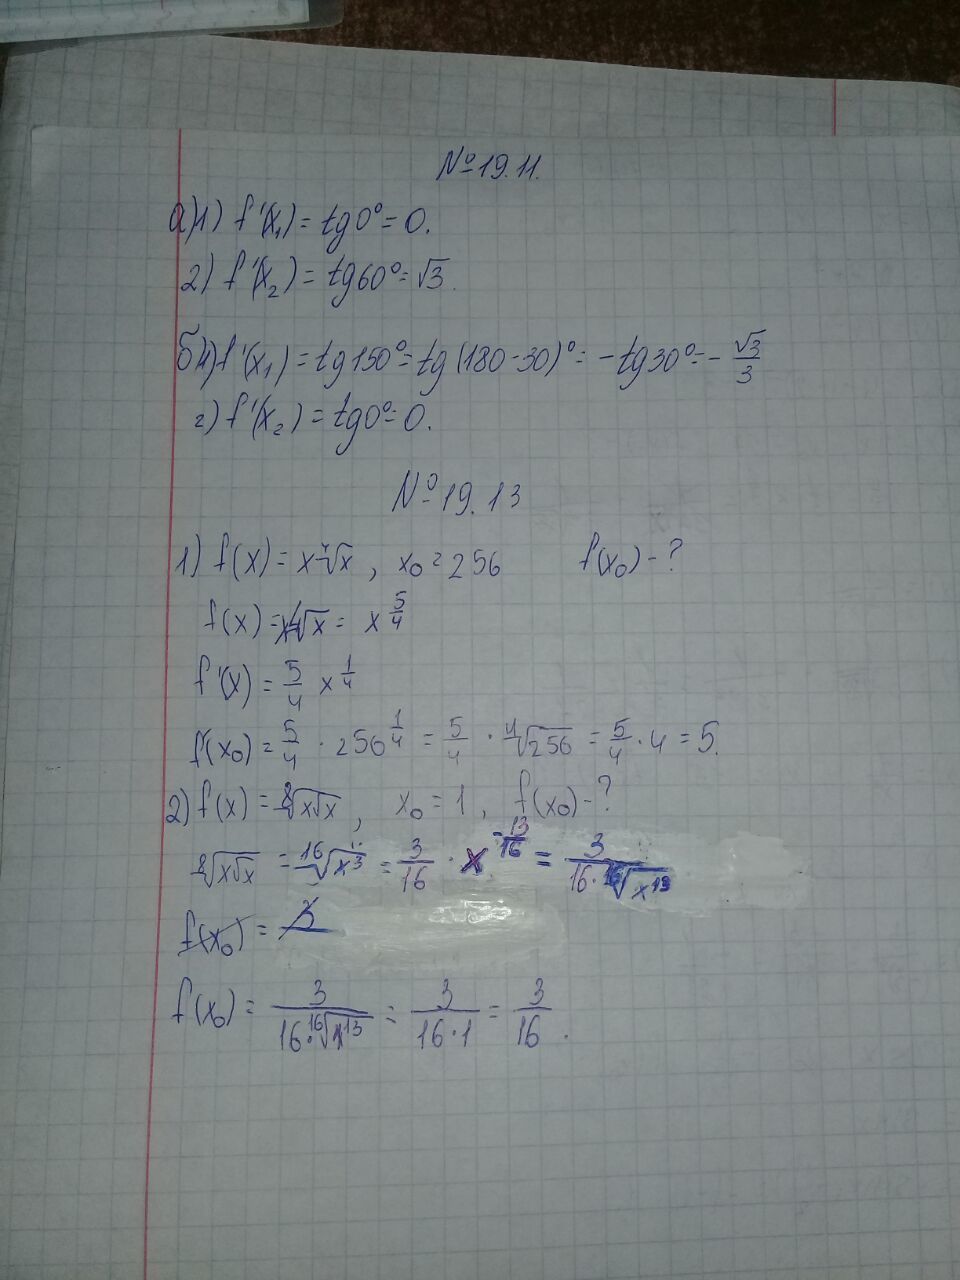 №19.11.
а)1) f'(x₁) = tg0° = 0.
2) f'(x₂) = tg60° = √3.
б)1) f'(x₁) = tg150° = tg(180-30)° = -tg30° = -√3/3
2) f'(x₂) = tg0° = 0.
№19.13
1) f(x) = x⁴√x, x₀ = 256 f(x₀) - ?
f(x) = x⁴√x = x^(5/4)
f'(x) = 5/4 x^(1/4)
f'(x₀) = 5/4 · 256^(1/4) = 5/4 · ⁴√256 = 5/4 · 4 = 5.
2) f(x) = ⁸√(x√x), x₀ = 1, f(x₀) - ?
⁸√(x√x) = ¹⁶√(x³) = 3/16 · x^(-13/16) = 3/(16·¹⁶√(x¹³))
f(x₀) = 3
f(x₀) = 3/(16·¹⁶√(1¹³)) = 3/(16·1) = 3/16.